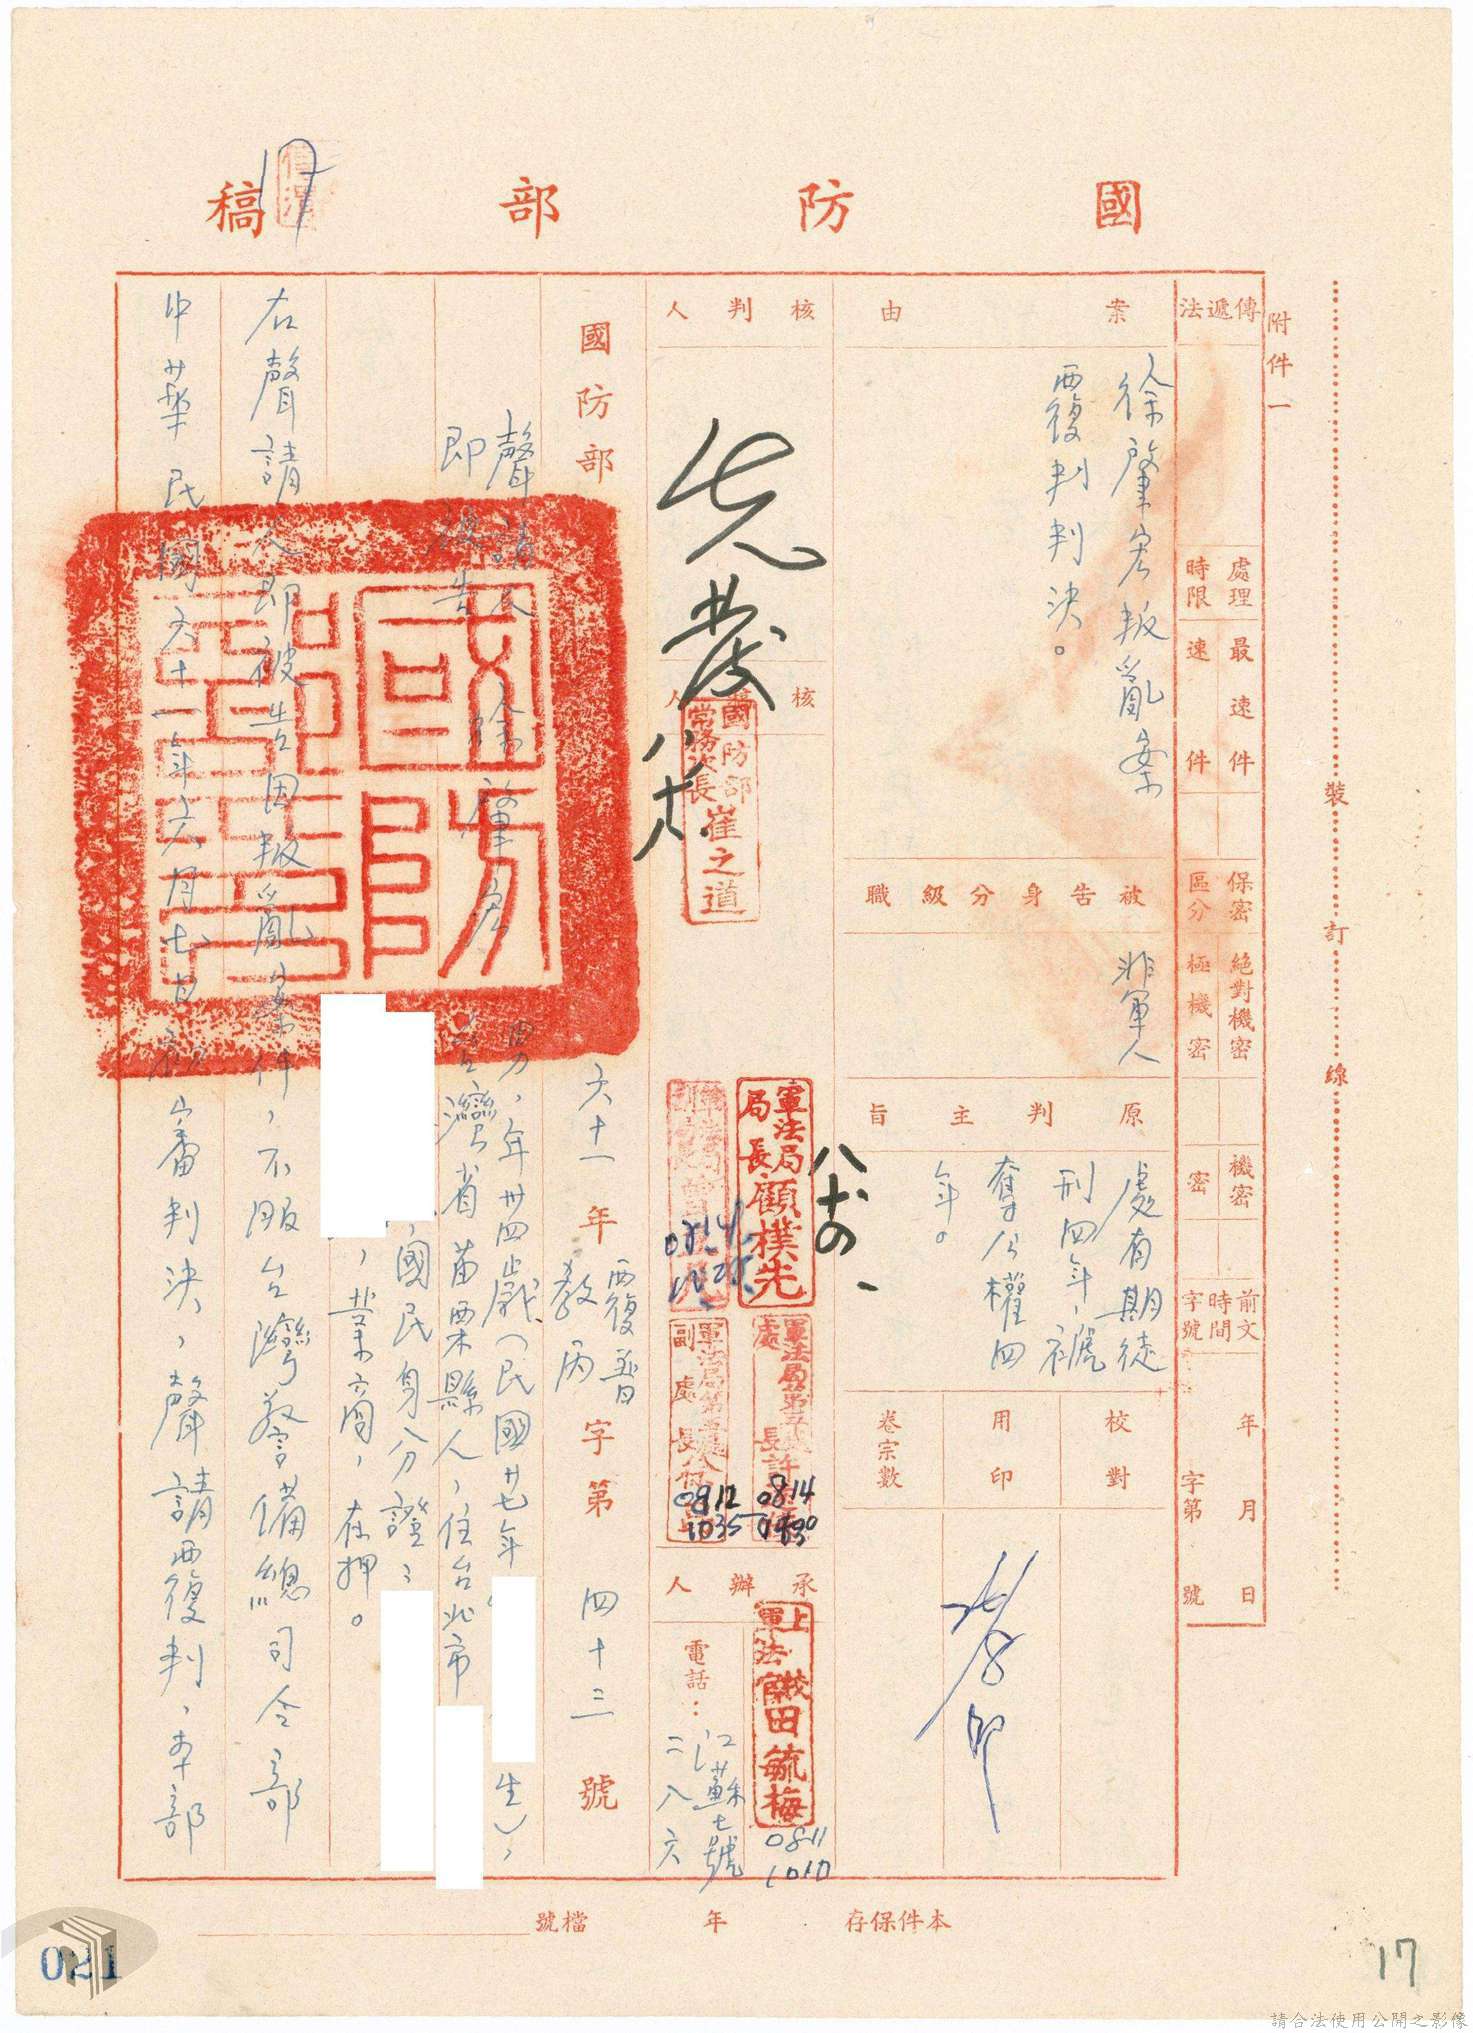 國防部稿
附件一
裝訂線
傳遞法
處理時限
最速件
速件
保密區分
絕對機密
極機密
機密
密
前文時間字號
年月日
字第號
案由
徐肇宏叛亂案
覆判判決。
被告身分級職
非軍人
原判主旨
處有期徒
刑四年,褫
奪公權四
年。
校對
用印
卷宗數
核判人
核稿人
國防部
常務次長崔之道
軍法局
局長顧樸先
0814
0930
0812
1035
承辦人
上校
軍法官田毓梅
0811
1010
電話:
江蘇七號
二八六
國防部
六十一年覆普教丙字第四十三號
聲請人
即被告
徐肇宏
男,年卅四歲(民國廿七年
生),
台灣省苗栗縣人,住台北市
,國民身分證:
,業商,在押。
右聲請人即被告因叛亂案件,不服台灣警備總司令部
中華民國六十一年六月七日初審判決,聲請覆判,本部
國防部印
本件保存年
檔號
021
17
請合法使用公開之影像